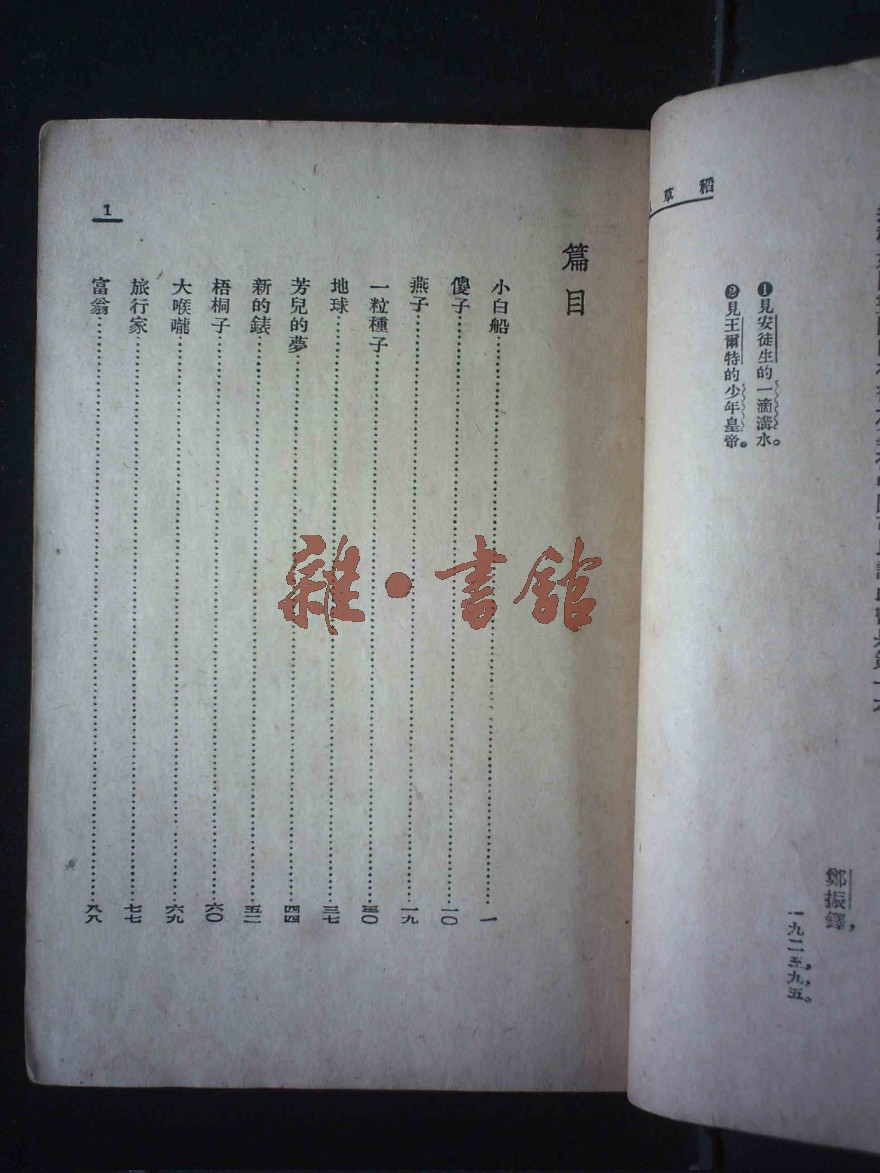 稻草
❶見安徒生的一滴溝水。
❷見王爾特的少年皇帝。
鄭振鐸,
一九二三,九,五。
1
篇目
小白船……一
傻子……一〇
燕子……一九
一粒種子……三〇
地球……三七
芳兒的夢……四四
新的錶……五二
梧桐子……六〇
大喉嚨……六九
旅行家……七七
富翁……八八
雜·書館